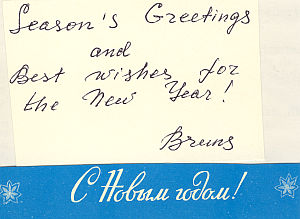 Season's Greetings
and
Best wishes for
the New Year!
Bruns
С Новым годом!